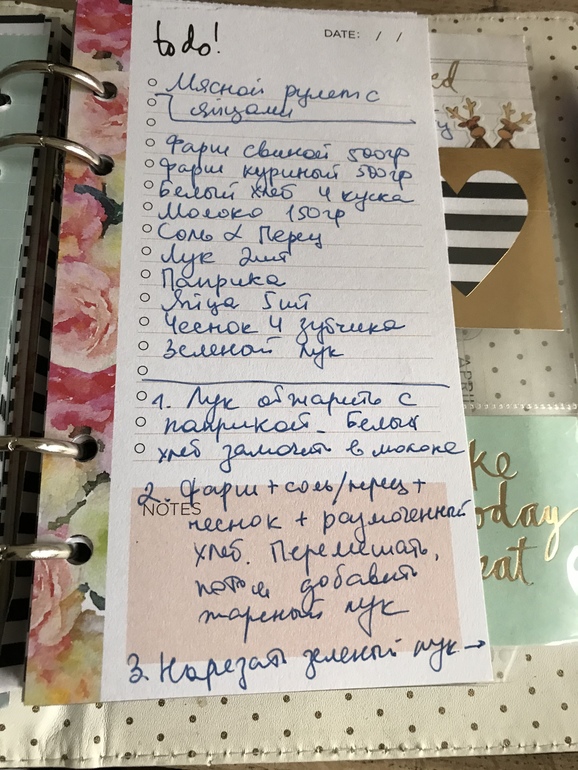 to do!
DATE: / /
Мясной рулет с
яйцами
Фарш свиной 500гр
Фарш куриный 500гр
Белый хлеб 4 куска
Молоко 150гр
Соль & Перец
Лук 2шт
Паприка
Яйца 5шт
Чеснок 4 зубчика
Зеленый лук
1. Лук обжарить с
паприкой. Белый
хлеб замочить в молоке
2. Фарш + соль/перец +
NOTES
чеснок + размоченный
хлеб. Перемешать,
потом добавить
жареный лук
3. Нарезать зеленый лук →
ed
y
APRIL
ke
oday
eat